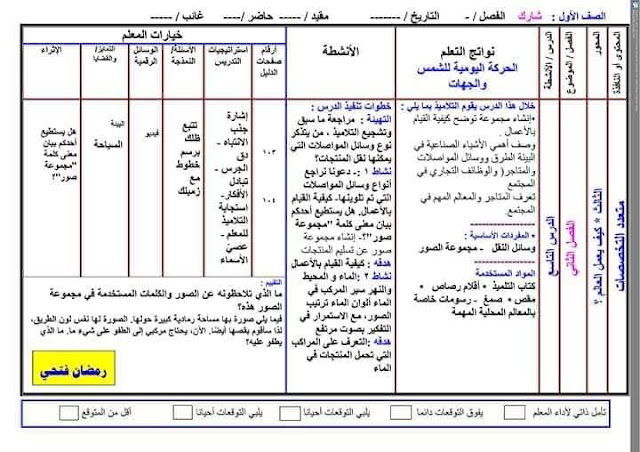 الصف الأول : شارك الفصل /- التاريخ /------- مقيد /----- حاضر /---- غائب /-----
المحتوى أو النافذة
المحور
الفصل / الموضوع
الدرس / الأنشطة
نواتج التعلم
الحركة اليومية للشمس
والجهات
الأنشطة
خيارات المعلم
أرقام صفحات الدليل
استراتيجيات التدريس
الأسئلة/ النمذجة
الوسائل الرقمية
التمايز/ والقضايا
الإثراء
متعدد التخصصات
الثالث * كيف يعمل العالم ؟
الفصل الثاني
الدرس التاسع
خلال هذا الدرس يقوم التلاميذ بما يلي :
•إنشاء مجموعة توضح كيفية القيام
بالأعمال .
وصف أهمي الأشياء الصناعية في
البيئة الطرق ووسائل المواصلات
والمتاجر( والوظائف التجاري في
المجتمع
تعرف المتاجر والمعالم المهم في
المجتمع.
----------------
• المفردات الأساسية :
وسائل النقل - مجموعة الصور
----------------
المواد المستخدمة
كتاب التلميذ * أقلام رصاص •
مقص • صمغ - رسومات خاصة
بالمعالم المحلية المهمة
خطوات تنفيذ الدرس :
التهيئة : مراجعة ما سبق
وتشجيع التلاميذ ، من يتذكر
نوع وسائل المواصلات التي
يمكنها نقل المنتجات؟
نشاط ١ :- دعونا نراجع
أنواع وسائل المواصلات
التي تم تلوينها- كيفية القيام
بالأعمال. هل يستطيع أحدكم
بيان معنى كلمة "مجموعة
صور"؟- إنشاء مجموعة
صور عن تسليم المنتجات
هدفه : كيفية القيام بالأعمال
نشاط ٢ :الماء و المحيط
والنهر سير المركب في
الماء ألوان الماء ترتيب
الصور، مع الاستمرار في
التفكير بصوت مرتفع
هدفه: التعرف على المراكب
التي تحمل المنتجات في
الماء
١٠٣
١٠٤
إشارة
جذب
الانتباه -
دق
الجرس -
تبادل
الأفكار-
استجابة
التلاميذ
للمعلم -
عصيّ
الأسماء
تتبع
ظلك
برسم
خطوط
مع
زميلك
فيديو
البيئة
السياحة
هل يستطيع
أحدكم بيان
معنى كلمة
"مجموعة
صور"؟
التقييم :
ما الذي تلاحظونه عن الصور والكلمات المستخدمة في مجموعة
الصور هذه؟
فيما يلي صورة بها مساحة رمادية كبيرة حولها. الصورة لها نفس لون الطريق،
لذا سأقوم بقصها أيضًا. الآن، يحتاج مركبي إلى الطفو على شيء ما. ما الذي
يطفو عليه؟
رمضان فتحي
تأمل ذاتي لأداء المعلم
يفوق التوقعات دائما
يلبي التوقعات أحيانا
يلبي التوقعات أحيانا
أقل من المتوقع